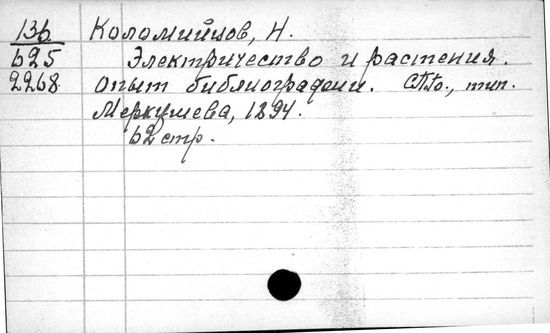 136 Коломийцов, Н.
625 Электричество и растения.
2268 Опыт библиографии. СПб., тип.
Меркушева, 1894.
62 стр.